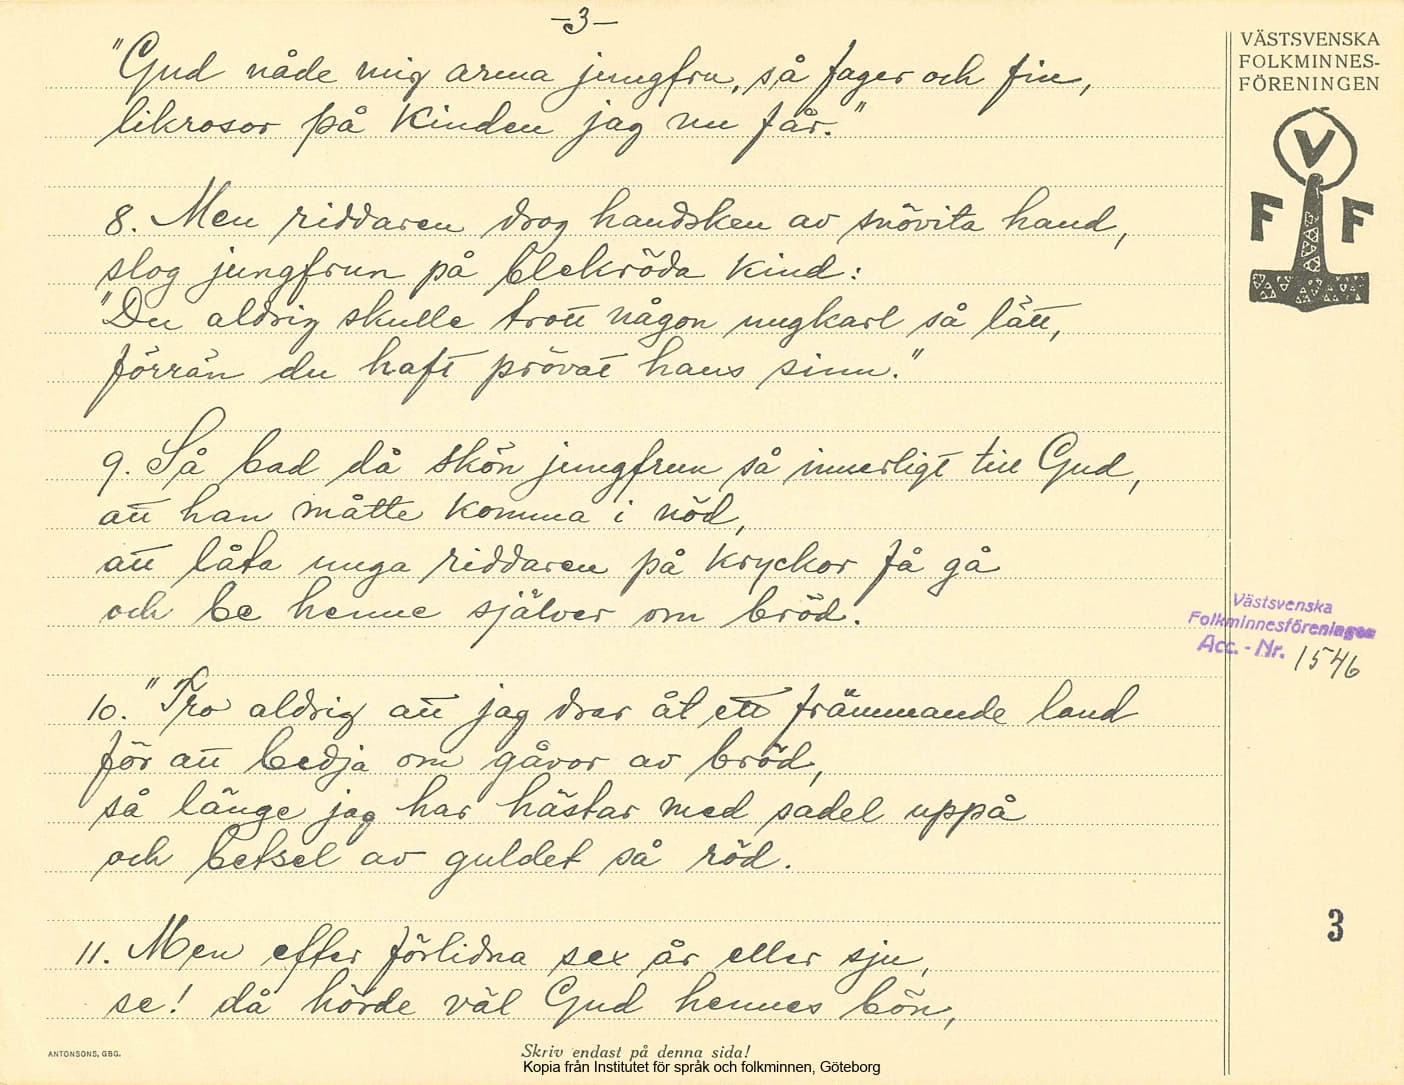 -3-
"Gud nåde mig arma jungfru, så fager och fin,
likrosor på kinden jag nu får."
8. Men riddaren drog handsken av snövita hand,
slog jungfrun på blekröda kind:
"Du aldrig skulle trott någon ungkarl så lätt,
förrän du haft prövat hans sinn."
9. Så bad då skön jungfrun så innerligt till Gud,
att han måtte komma i nöd,
att låta unga riddaren på kryckor få gå
och be henne själver om bröd.
10. "Tro aldrig att jag drar åt ett främmande land
för att bedja om gåvor av bröd,
så länge jag har hästar med sadel uppå
och betsel av guldet så röd.
11. Men efter förlidna sex år eller sju,
se! då hörde väl Gud hennes bön,
VÄSTSVENSKA
FOLKMINNES-
FÖRENINGEN
V
F F
Västsvenska
Folkminnesföreningen
Acc. - Nr. 1546
3
ANTONSONS, GBG.
Skriv endast på denna sida!
Kopia från Institutet för språk och folkminnen, Göteborg